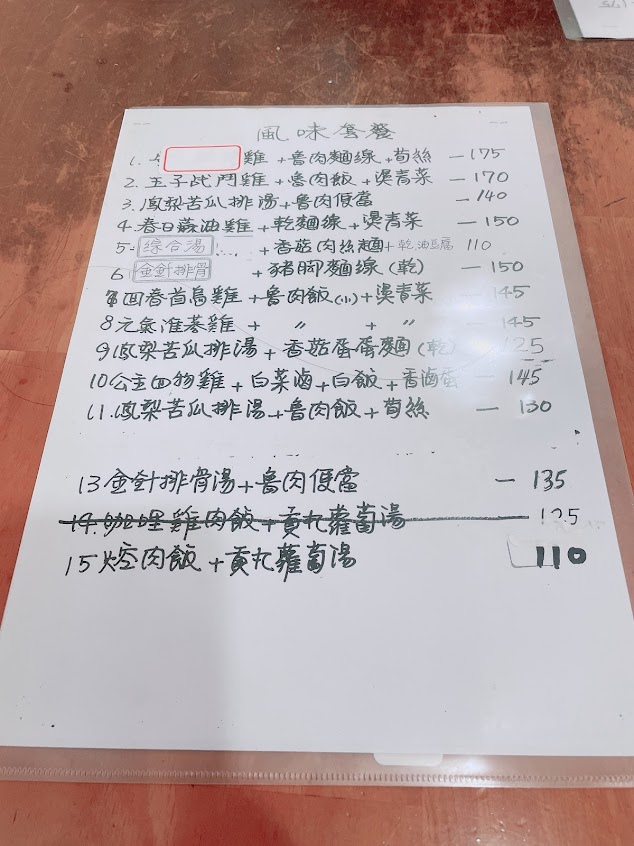 風味套餐
1. 雞+魯肉麵線+筍絲 — 175
2. 王子戰鬥雞+魯肉飯+燙青菜 — 170
3. 鳳梨苦瓜排湯+魯肉便當 — 140
4. 春日蔴油雞+乾麵線+燙青菜 — 150
5. 綜合湯 +香菇肉絲麵+乾油豆腐 110
6 金針排骨 +豬腳麵線(乾) — 150
回春首烏雞+魯肉飯(小)+燙青菜 — 145
8 元氣淮蔘雞 + 〃 + 〃 — 145
9 鳳梨苦瓜排湯+香菇蛋蛋麵(乾) 125
10 公主四物雞+白菜滷+白飯+香滷蛋 — 145
11. 鳳梨苦瓜排湯+魯肉飯+筍絲 — 130
13 金針排骨湯+魯肉便當 — 135
14. 咖哩雞肉飯+貢丸蘿蔔湯 — 125
15 焢肉飯+貢丸蘿蔔湯 110